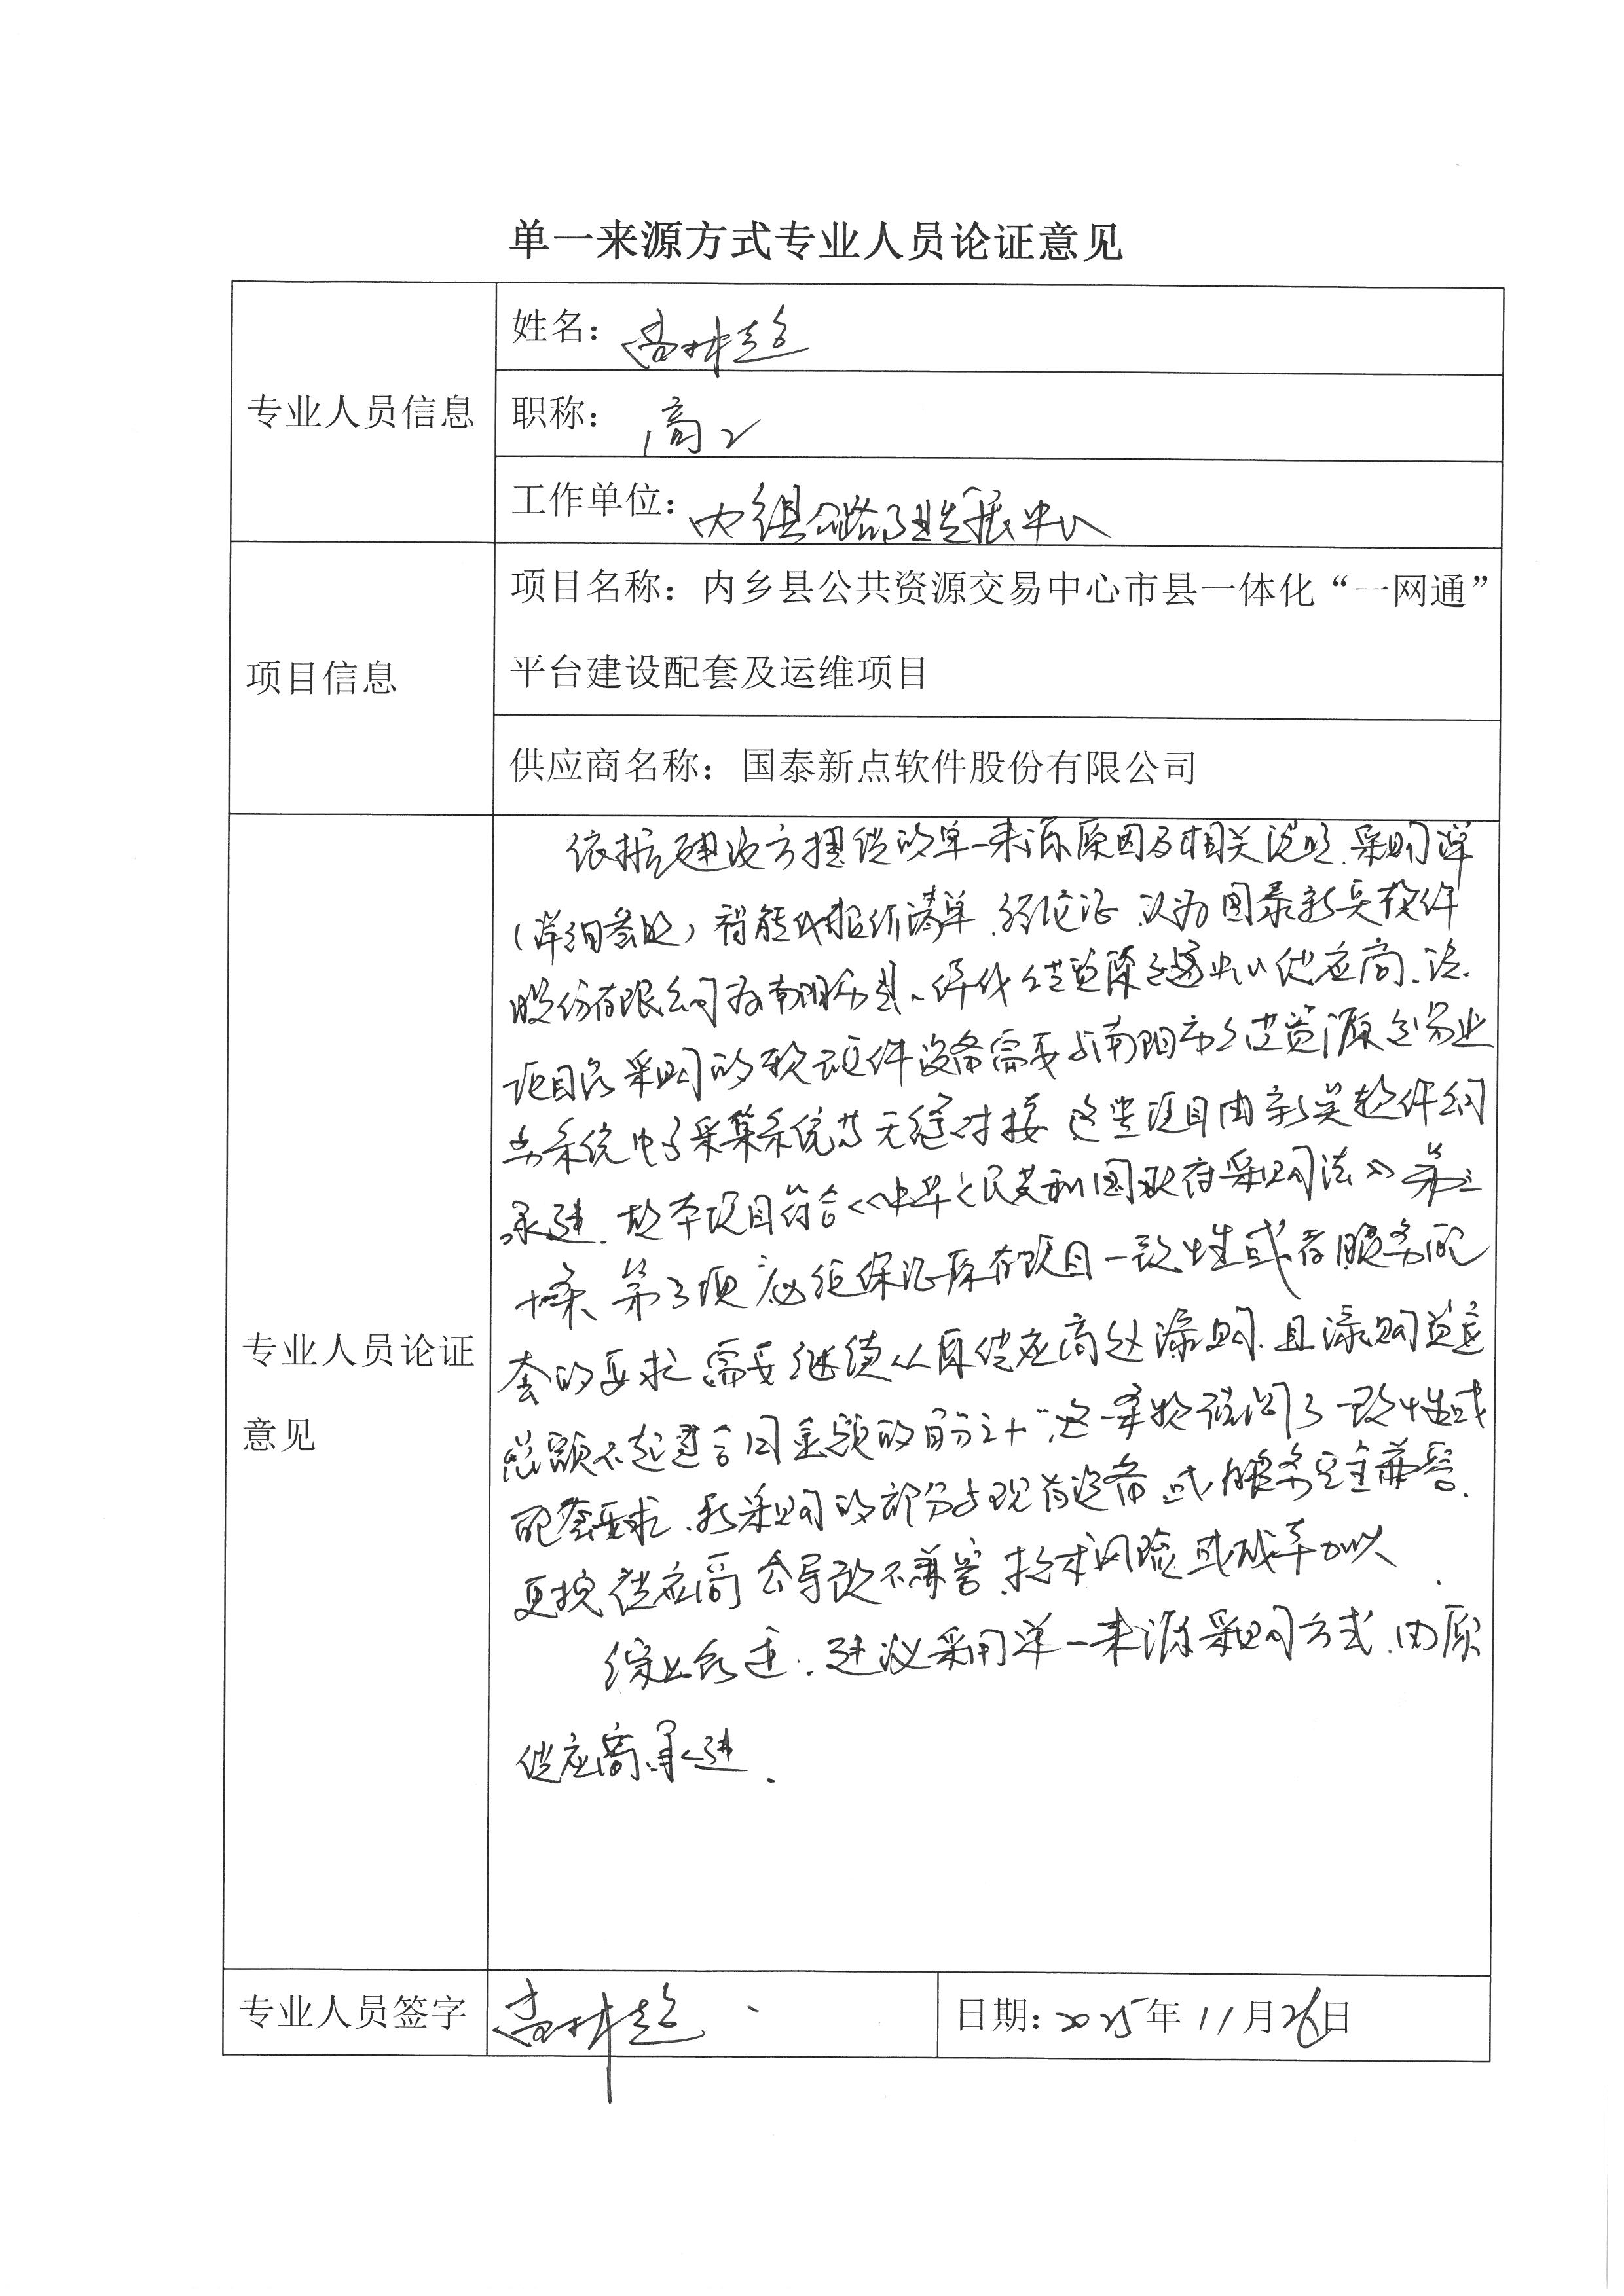 单一来源方式专业人员论证意见
专业人员信息
姓名：高林超
职称：高工
工作单位：内乡县公路事业发展中心
项目信息
项目名称：内乡县公共资源交易中心市县一体化“一网通”
平台建设配套及运维项目
供应商名称：国泰新点软件股份有限公司
专业人员论证
意见
依据建设方提供的单一来源原因及相关说明、采购单
（详细参数）智能化报价清单，经论证，认为国泰新点软件
股份有限公司为南阳 公共资源交易中心供应商，该
项目所采购的软硬件设备需要与南阳市公共资源交易业
务系统电子采集系统等无缝对接，这些项目由新点软件公司
承建，故本项目符合《中华人民共和国政府采购法》第三
十一条第3项 必须保证原有项目一致性或者服务配
套的要求，需要继续从原供应商处添购，且添购资金
总额不超过合同金额的百分之十”，这一条款强调了一致性或
配套要求，新采购的部分与现有设备或服务完全兼容，
更换供应商会导致不兼容，技术风险或成本加大．
综上所述，建议采用单一来源采购方式，由原
供应商承建．
专业人员签字
高林超
日期：2025年11月26日